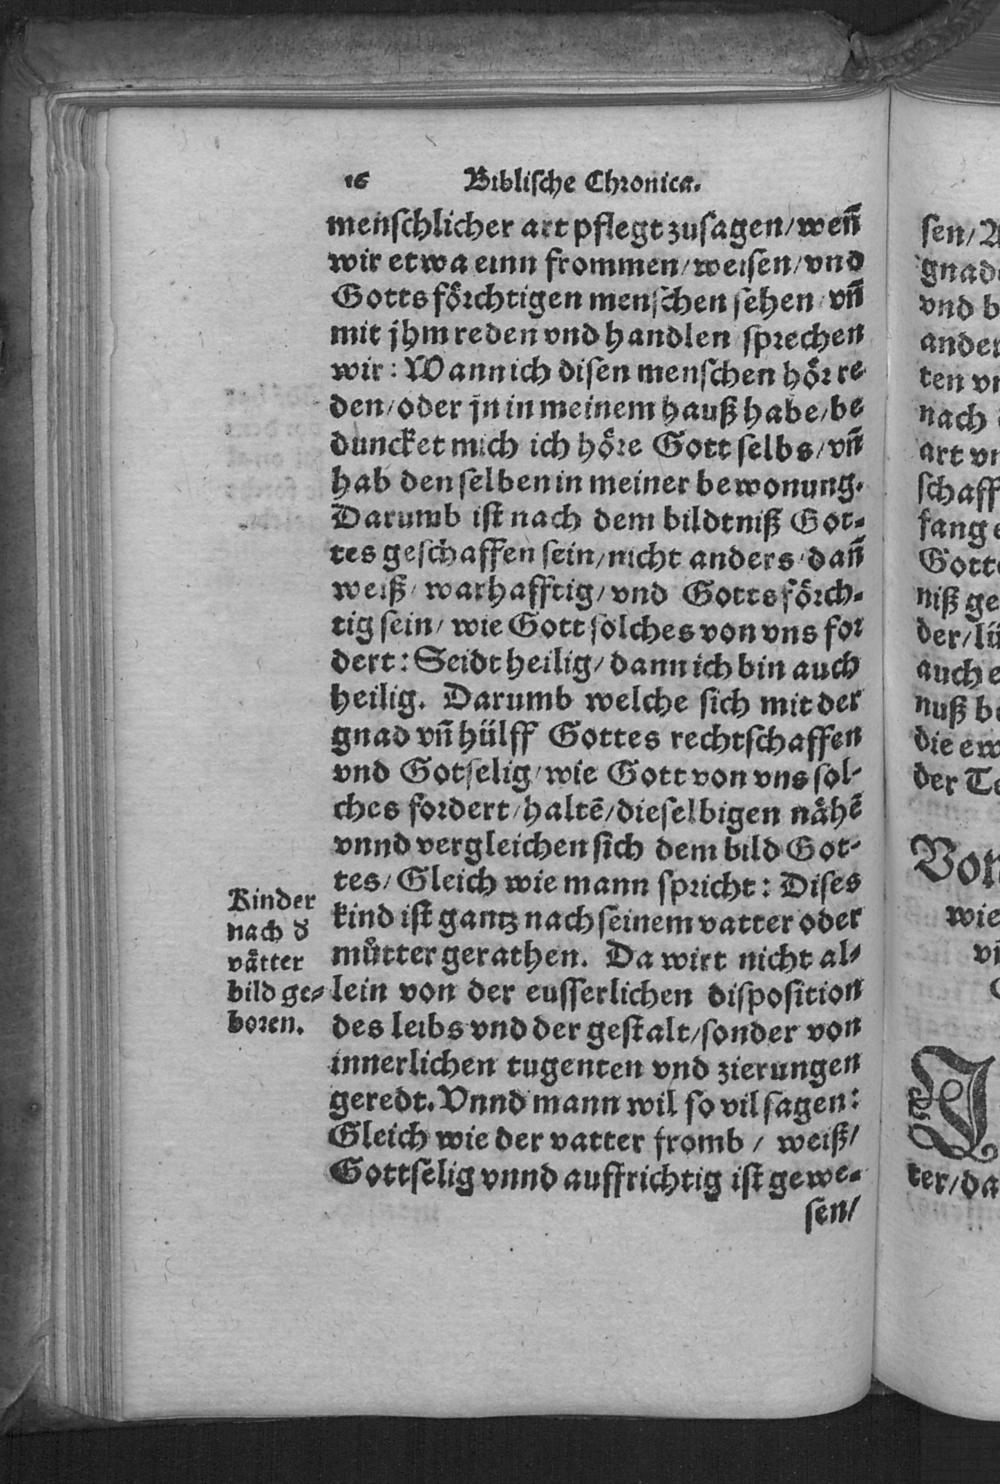 16 Biblische Chronica.
menschlicher art pflegt zusagen/ weñ
wir etwa einn frommen/ weisen/ vnd
Gottsförchtigen menschen sehen/ vñ
mit jhm reden vnd handlen sprechen
wir: Wann ich disen menschen hör re-
den/ oder jn in meinem hauß habe/ be
duncket mich ich höre Gott selbs/ vñ
hab den selben in meiner bewonung.
Darumb ist nach dem bildtniß Got-
tes geschaffen sein/ nicht anders/ dañ
weiß/ warhafftig/ vnd Gottsförch-
tig sein/ wie Gott solches von vns for
dert: Seidt heilig/ dann ich bin auch
heilig. Darumb welche sich mit der
gnad vñ hülff Gottes rechtschaffen
vnd Gotselig/ wie Gott von vns sol-
ches fordert/ haltẽ/ dieselbigen nähẽ
vnnd vergleichen sich dem bild Got-
tes/ Gleich wie mann spricht: Dises
kind ist gantz nach seinem vatter oder
můtter gerathen. Da wirt nicht al-
lein von der eusserlichen disposition
des leibs vnd der gestalt/ sonder von
innerlichen tugenten vnd zierungen
geredt. Vnnd mann wil so vil sagen:
Gleich wie der vatter fromb/ weiß/
Gottselig vnnd auffrichtig ist gewe-
sen/
Kinder
nach d
vätter
bild ge-
boren.
sen/
gnad
vnd
ander
ten
nach
art
schaff
fang
Gott
niß ge
der/ lü
auch
nuß
die ew
der
Von
wie
ter/ da